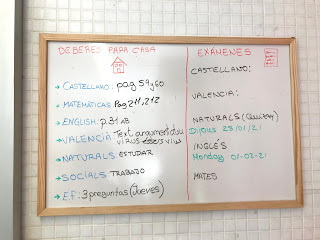 DEBERES PARA CASA
CASTELLANO: pag 59 y 60
MATEMÁTICAS: Pag 211, 212
ENGLISH: p.31 AB
VALENCIÀ: Text argumentatiu
VIRUS
NATURALS ESTUDAR
SOCIALS TRABAJO
E.F: 3 preguntas (Jueves)
EXÁMENES
CASTELLANO:
VALENCIÀ:
NATURALS
Dijous 28/01/21
INGLÉS
Monday 01-02-21
MATES